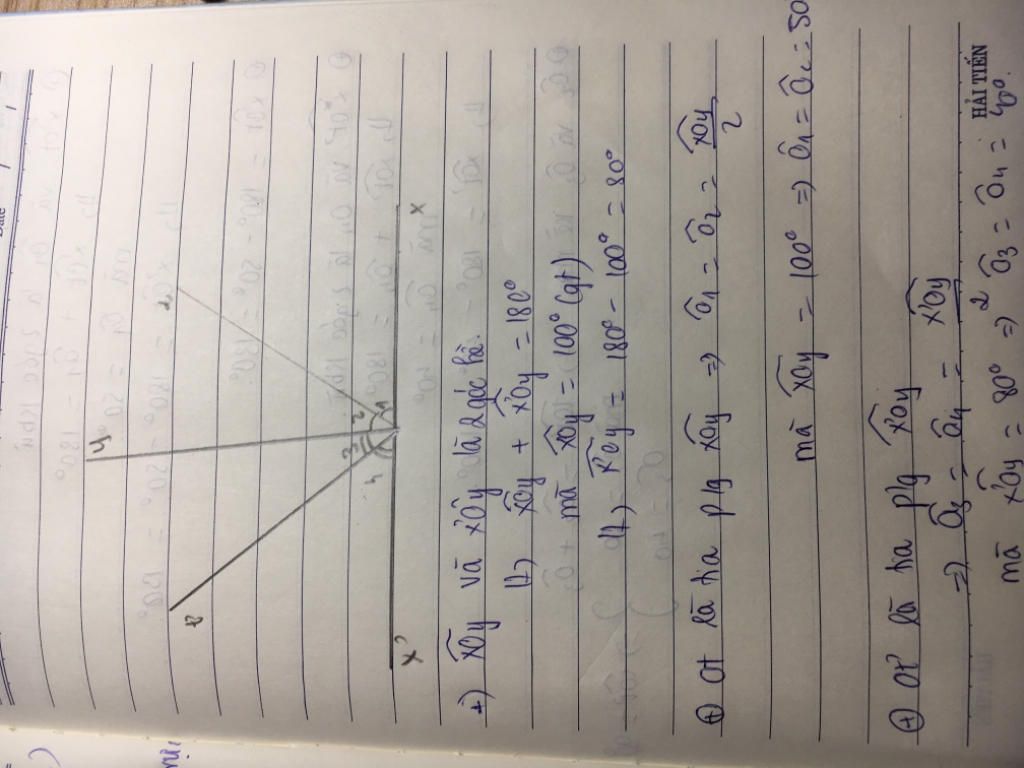 y
t
x'
x
1
2
3
4
+) xOy và x'Oy là 2 góc kề.
xOy + x'Oy = 180°
mà xOy = 100° (gt)
x'Oy = 180° - 100° = 80°
+) Ot là tia plg xOy => Ô1 = Ô2 = xOy / 2
mà xOy = 100° => Ô1 = Ô2 = 50
+) Ot' là tia plg x'Oy
=> Ô3 = Ô4 = x'Oy / 2
mà x'Oy = 80° => Ô3 = Ô4 = 40°.
HẢI TIẾN